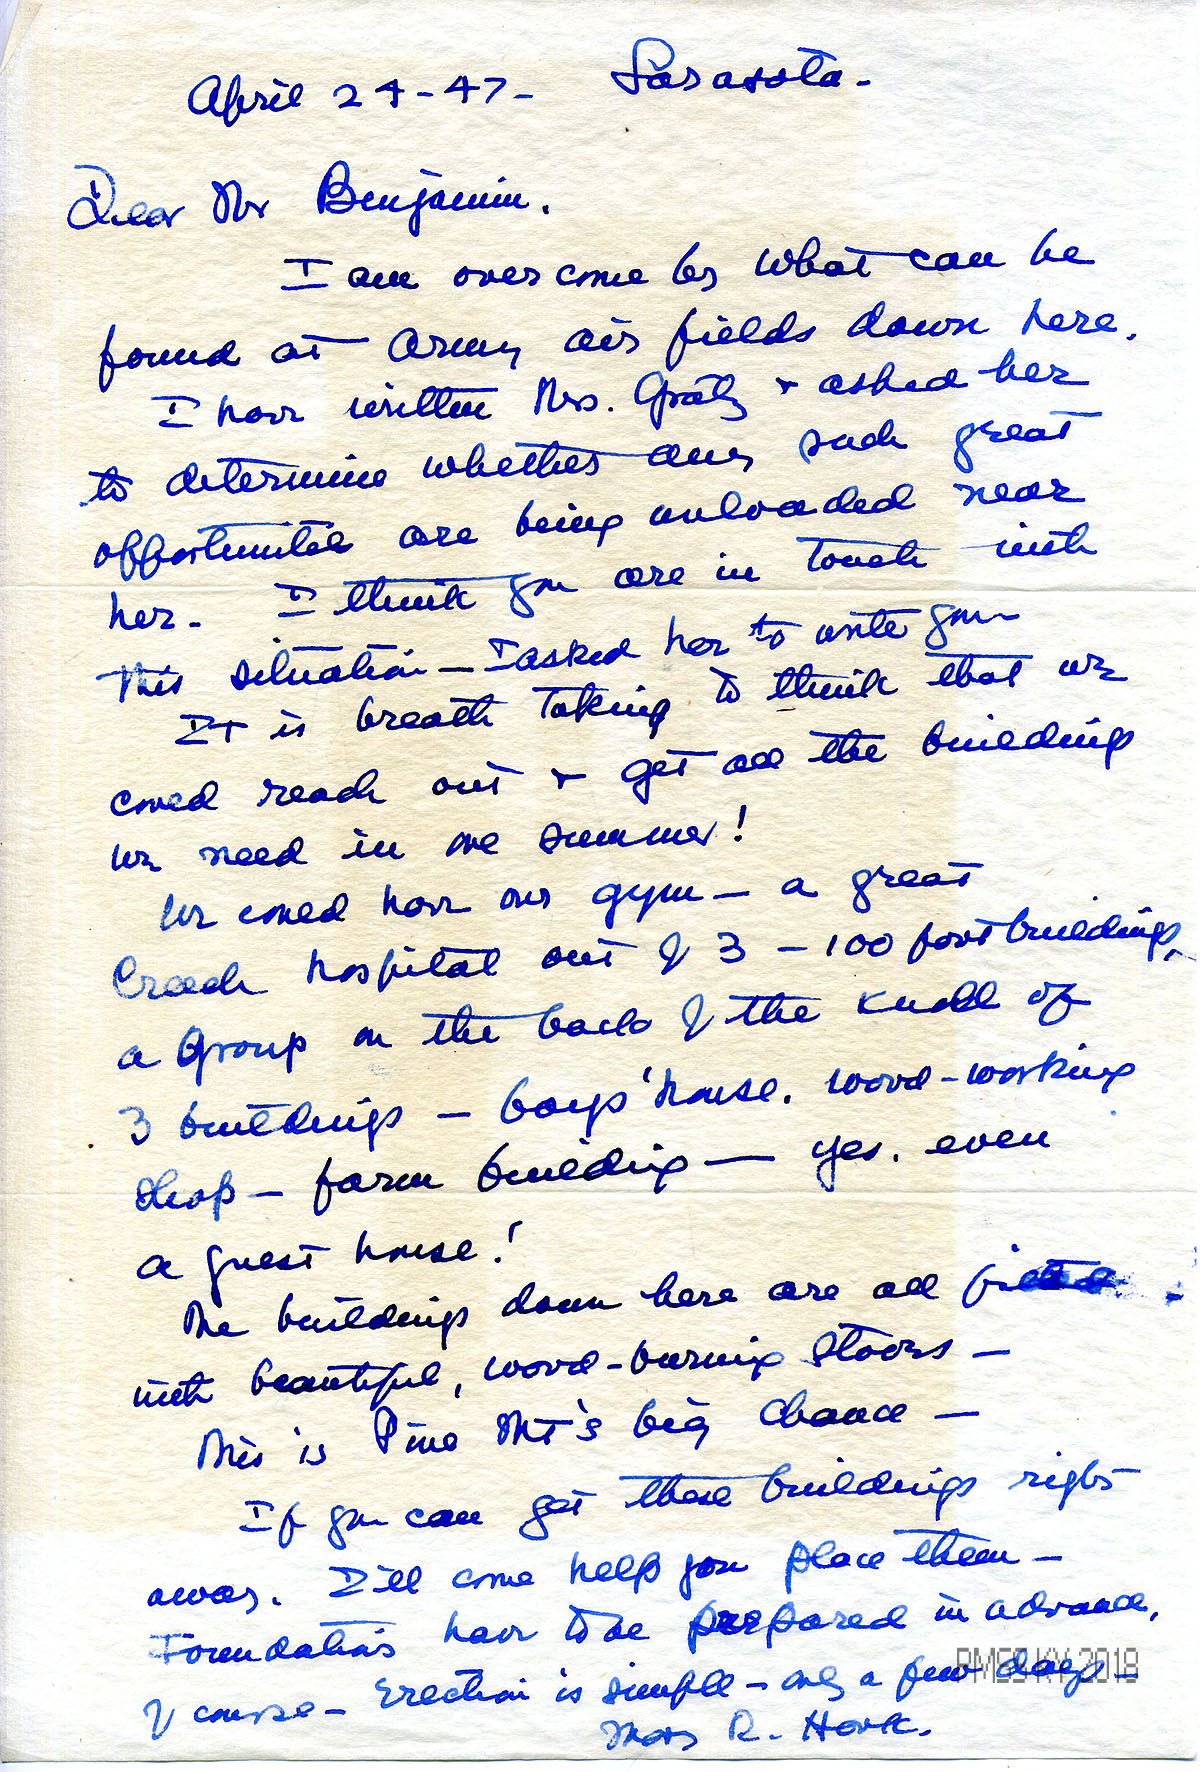 April 24-47- Sarasota-
Dear Mr Benjamin.
I am overcome by what can be
found at Army air fields down here.
I have written Mrs. Gratz + asked her
to determine whether any such great
opportunities are being unloaded near
her. I think you are in touch with
this situation - I asked her to write you
It is breath taking to think that we
could reach out + get all the buildings
we need in one summer!
We could have our gym - a great
Creech hospital out of 3 - 100 foot buildings,
a group on the back of the knoll of
3 buildings - boys' house, wood-working
shop - farm building - yes, even
a guest house!
The buildings down here are all fitted
with beautiful, wood-burning stoves -
This is Pine Mt's big chance -
If you can get these buildings right
away. I'll come help you place them -
Foundations have to be prepared in advance,
of course - Erection is simple - only a few days -
Mary R. Hook.
PMSS KY 2018